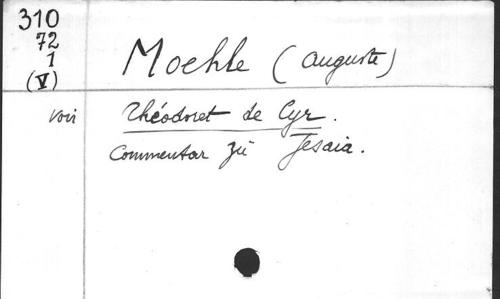 310
72
1
(V)
Moehle (Auguste)
voir Théodoret de Cyr.
Commentar zü Jesaia.